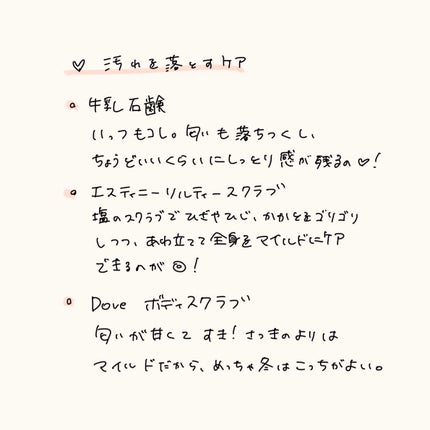 ♡ 汚れを落とすケア
牛乳石鹸
いっつもコレ。匂いも落ちつくし、
ちょうどいいくらいにしっとり感が残るの♡!
エスティニーソルティースクラブ
塩のスクラブでひざやひじ、かかとをゴリゴリ
しつつ、あわ立てて全身をマイルドにケア
できるのが◎!
Dove ボディスクラブ
匂いが甘くてすき!さっきのよりは
マイルドだから、めっちゃ冬はこっちがよい。